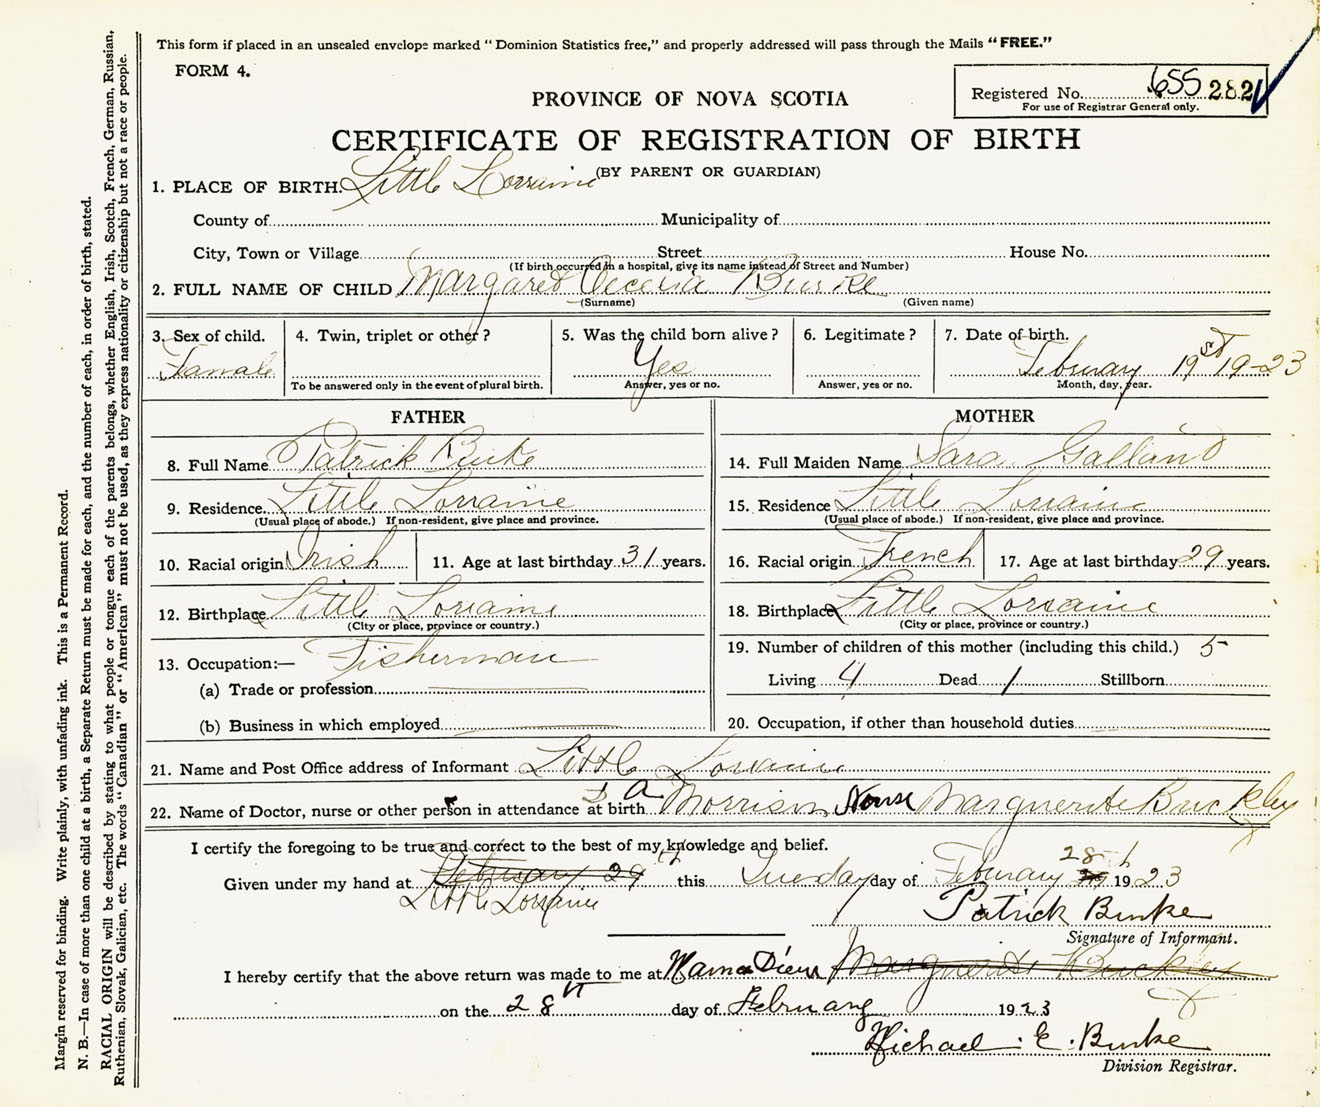 This form if placed in an unsealed envelope marked "Dominion Statistics free," and properly addressed will pass through the Mails "FREE."
FORM 4.
Registered No. 655 282
For use of Registrar General only.
PROVINCE OF NOVA SCOTIA
CERTIFICATE OF REGISTRATION OF BIRTH
(BY PARENT OR GUARDIAN)
1. PLACE OF BIRTH: Little Lorraine
County of Municipality of
City, Town or Village Street House No.
(If birth occurred in a hospital, give its name instead of Street and Number)
2. FULL NAME OF CHILD Margaret Cecelia Burke
(Surname) (Given name)
3. Sex of child. 4. Twin, triplet or other? 5. Was the child born alive? 6. Legitimate? 7. Date of birth.
Famale Yes February 19 st 19-23
To be answered only in the event of plural birth. Answer, yes or no. Answer, yes or no. Month, day, year.
FATHER
8. Full Name Patrick Burke
9. Residence. Little Lorraine
(Usual place of abode.) If non-resident, give place and province.
10. Racial origin Irish 11. Age at last birthday 31 years.
12. Birthplace Little Lorraine
(City or place, province or country.)
13. Occupation:— Fisherman
(a) Trade or profession
(b) Business in which employed
MOTHER
14. Full Maiden Name Sara Galland
15. Residence Little Lorraine
(Usual place of abode.) If non-resident, give place and province.
16. Racial origin French 17. Age at last birthday 29 years.
18. Birthplace Little Lorraine
(City or place, province or country.)
19. Number of children of this mother (including this child.) 5
Living 4 Dead 1 Stillborn
20. Occupation, if other than household duties
21. Name and Post Office address of Informant Little Lorraine
22. Name of Doctor, nurse or other person in attendance at birth Morrison Nurse Marguerite Buckley
I certify the foregoing to be true and correct to the best of my knowledge and belief.
Given under my hand at February 29 th this Tuesday day of February 28 th 1923
Little Lorraine
Patrick Burke
Signature of Informant.
I hereby certify that the above return was made to me at Main a Dieu Marguerite Buckley
on the 28 th day of February 1923
Michael E. Burke
Division Registrar.
Margin reserved for binding. Write plainly, with unfading ink. This is a Permanent Record.
N. B.—In case of more than one child at a birth, a Separate Return must be made for each, and the number of each, in order of birth, stated.
RACIAL ORIGIN will be described by stating to what people or tongue each of the parents belongs, whether English, Irish, Scotch, French, German, Russian,
Ruthenian, Slovak, Galician, etc. The words "Canadian" or "American" must not be used, as they express nationality or citizenship but not a race or people.